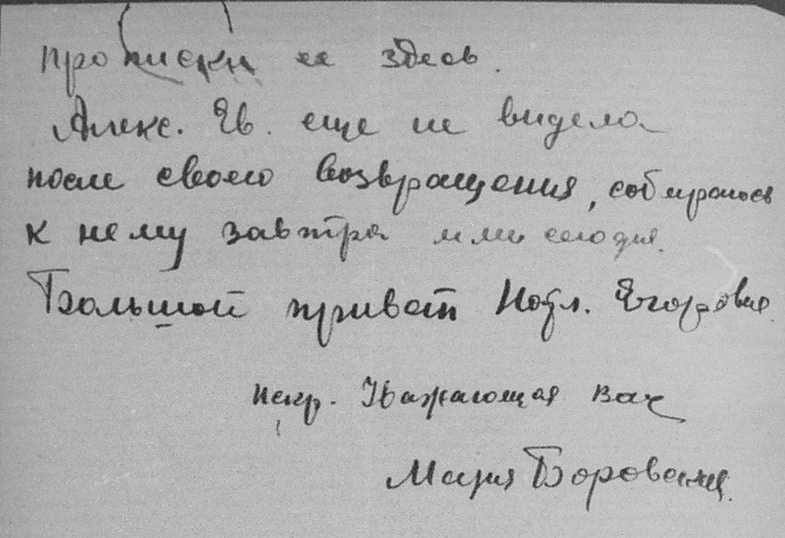 прописки ее здесь.
Алекс. Ев. еще не видела
после своего возвращения, собираюсь
к нему завтра или сегодня.
Большой привет Егоровне.
Искр. Уважающая Вас
Мария